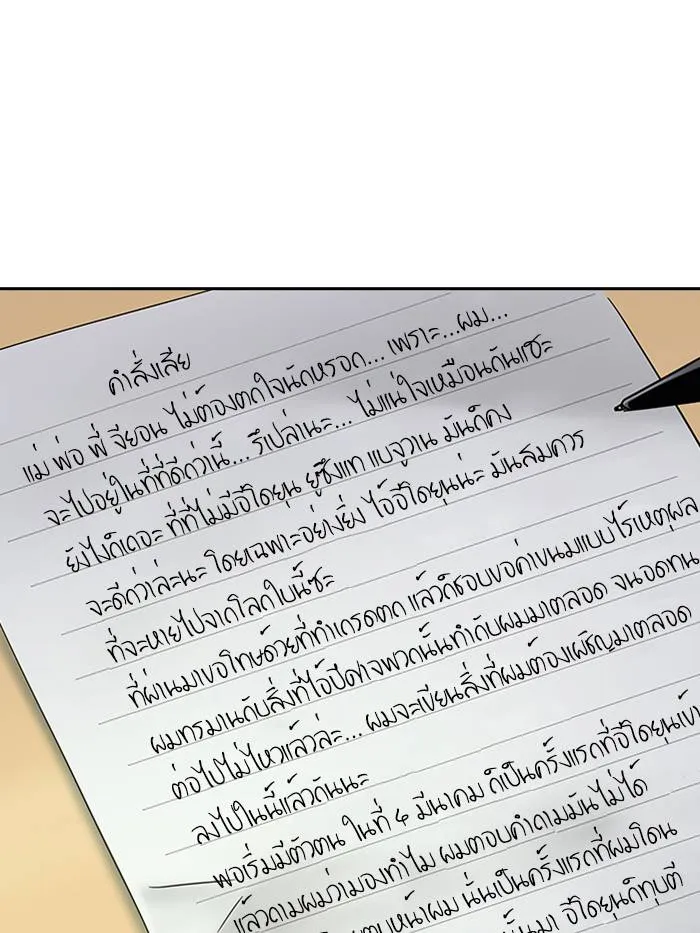 คำสั่งเสีย
แม่ พ่อ พี่ จียอน ไม่ต้องตกใจนักหรอก... เพราะ...ผม...
จะไปอยู่ในที่ที่ดีกว่านี้... รึเปล่านะ... ไม่แน่ใจเหมือนกันแฮะ
ยังไงก็เถอะ ที่ที่ไม่มีอีโดยุน ยูซึงแท แบจูวาน มันก็คง
จะดีกว่าล่ะนะ โดยเฉพาะอย่างยิ่ง ไอ้อีโดยุนน่ะ มันสมควร
ที่จะหายไปจากโลกใบนี้ซะ
ที่ผ่านมาขอโทษด้วยที่ทำเกรดตก แล้วก็ชอบขอค่าขนมแบบไร้เหตุผล
ผมทรมานกับสิ่งที่ไอ้ปีศาจพวกนั้นทำกับผมมาตลอด จนอดทน
ต่อไปไม่ไหวแล้วล่ะ... ผมจะเขียนสิ่งที่ผมต้องเผชิญมาตลอด
ลงไปในนี้แล้วกันนะ
พอเริ่มมีตัวตน ในที่ 4 มีนาคม ก็เป็นครั้งแรกที่อีโดยุนเข้า
แล้วถามผมว่ามองทำไม ผมตอบคำถามมันไม่ได้
ตบหน้าผม นั่นเป็นครั้งแรกที่ผมโดน
นั้นมา อีโดยุนก็ทุบตี